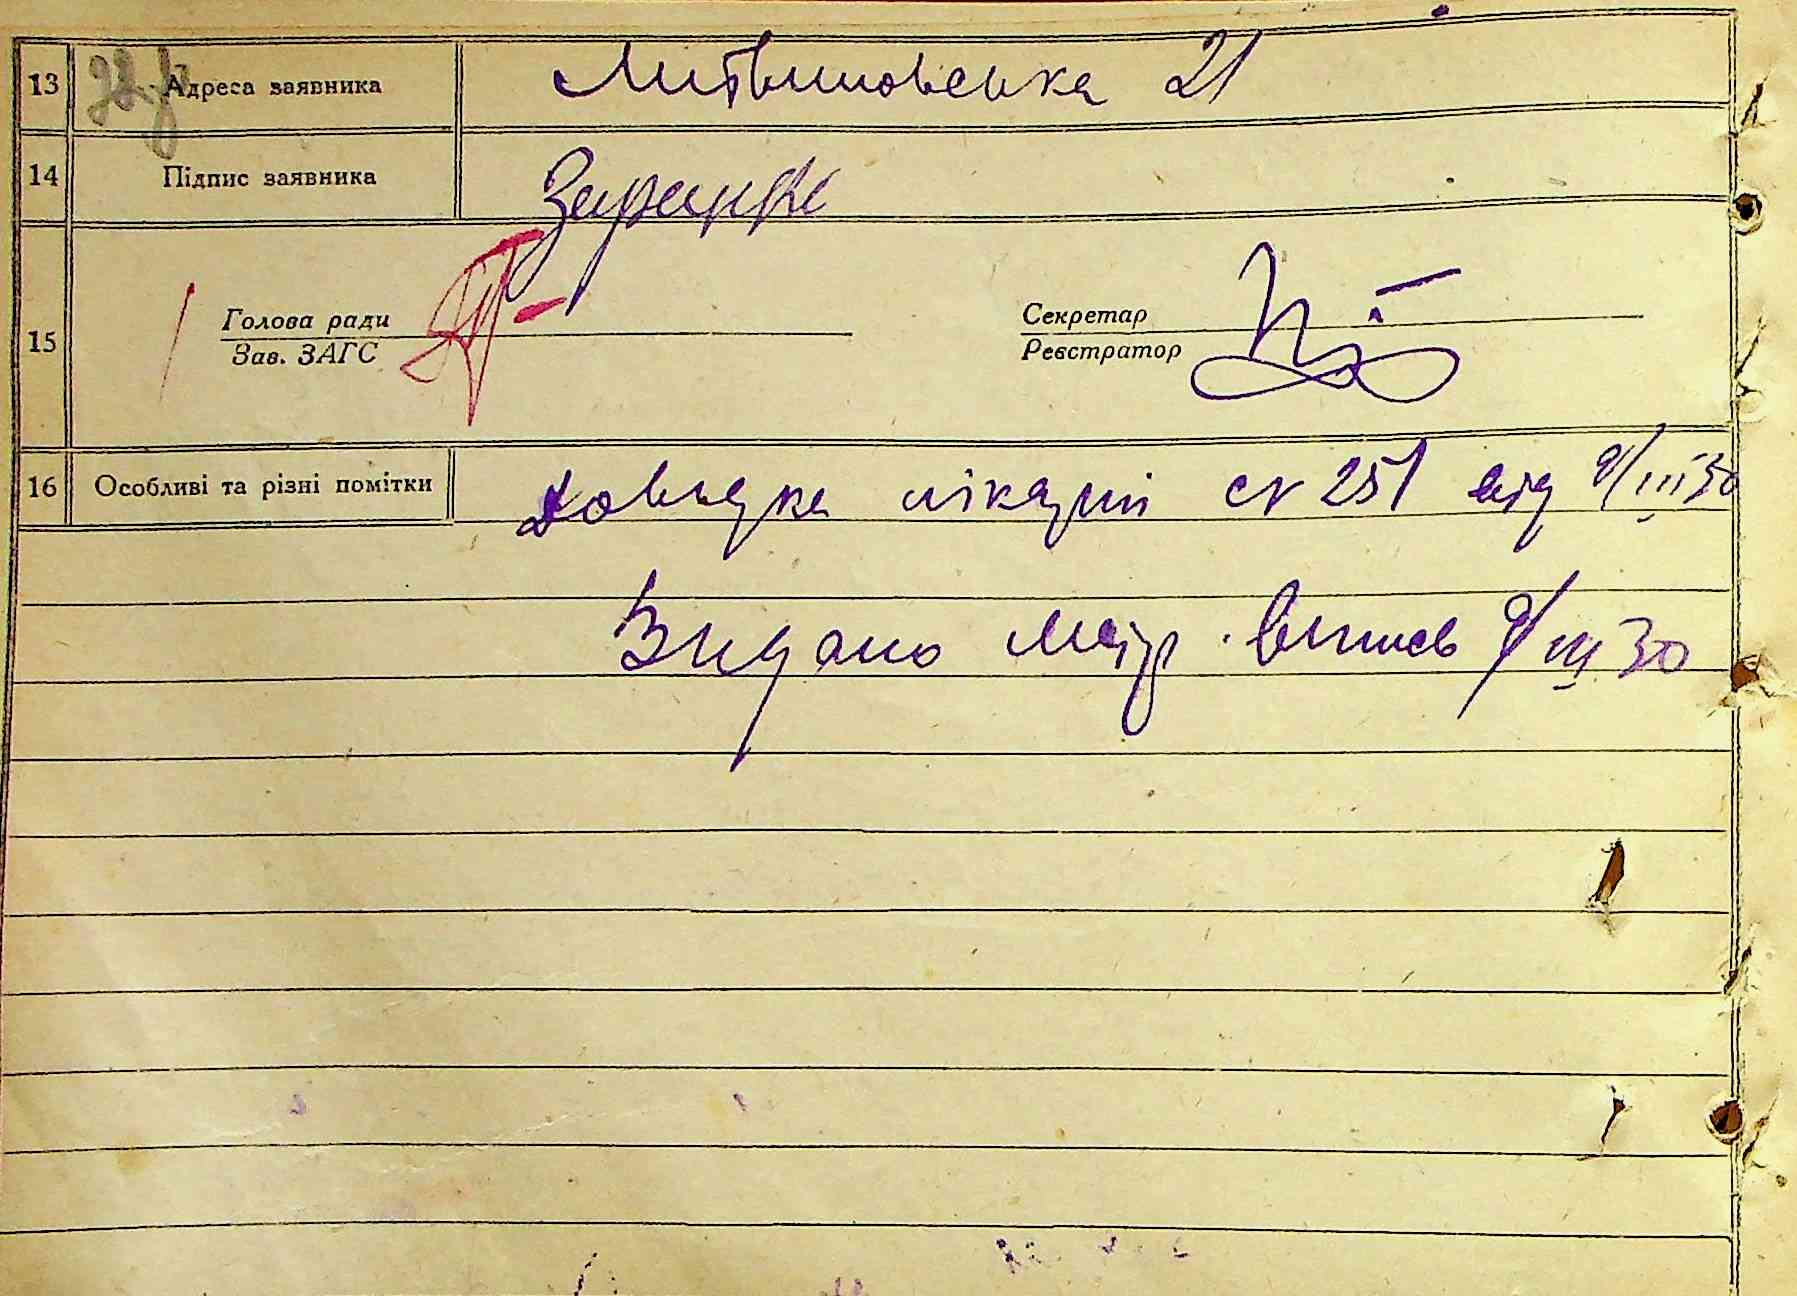 13 Адреса заявника Литвиновська 21
14 Підпис заявника
15 Голова ради Секретар
Зав. ЗАГС Реєстратор
16 Особливі та різні помітки Довидка лікарні ст 251 від 9/III 30
Видано метр. випись 9/III 30